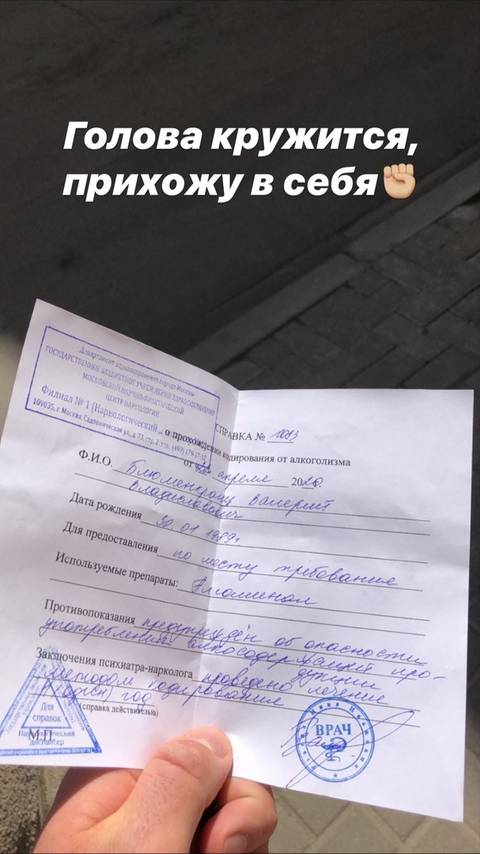 Голова кружится,
прихожу в себя✊🏼
Департамент здравоохранения города Москвы
ГОСУДАРСТВЕННОЕ БЮДЖЕТНОЕ УЧРЕЖДЕНИЕ ЗДРАВООХРАНЕНИЯ
МОСКОВСКИЙ НАУЧНО-ПРАКТИЧЕСКИЙ
ЦЕНТР НАРКОЛОГИИ
Филиал № 1 (Наркологический
109035, г. Москва, Садовническая ул., д. 73, стр. 2, тел.
СПРАВКА № 1083
о прохождении кодирования от алкоголизма
от апреля 20
Ф.И.О. Валерий
Владиславович
Дата рождения 30.01.1989г.
Для предоставления по месту требования
Используемые препараты:
Противопоказания предупреждён об опасности
употребления алкосодержащей про-
дукции
Заключения психиатра-нарколога проведено лечение
методом кодирования
(один) год
(справка действительна)
М.П.
Для
справок
Наркологический
диспансер
ВРАЧ